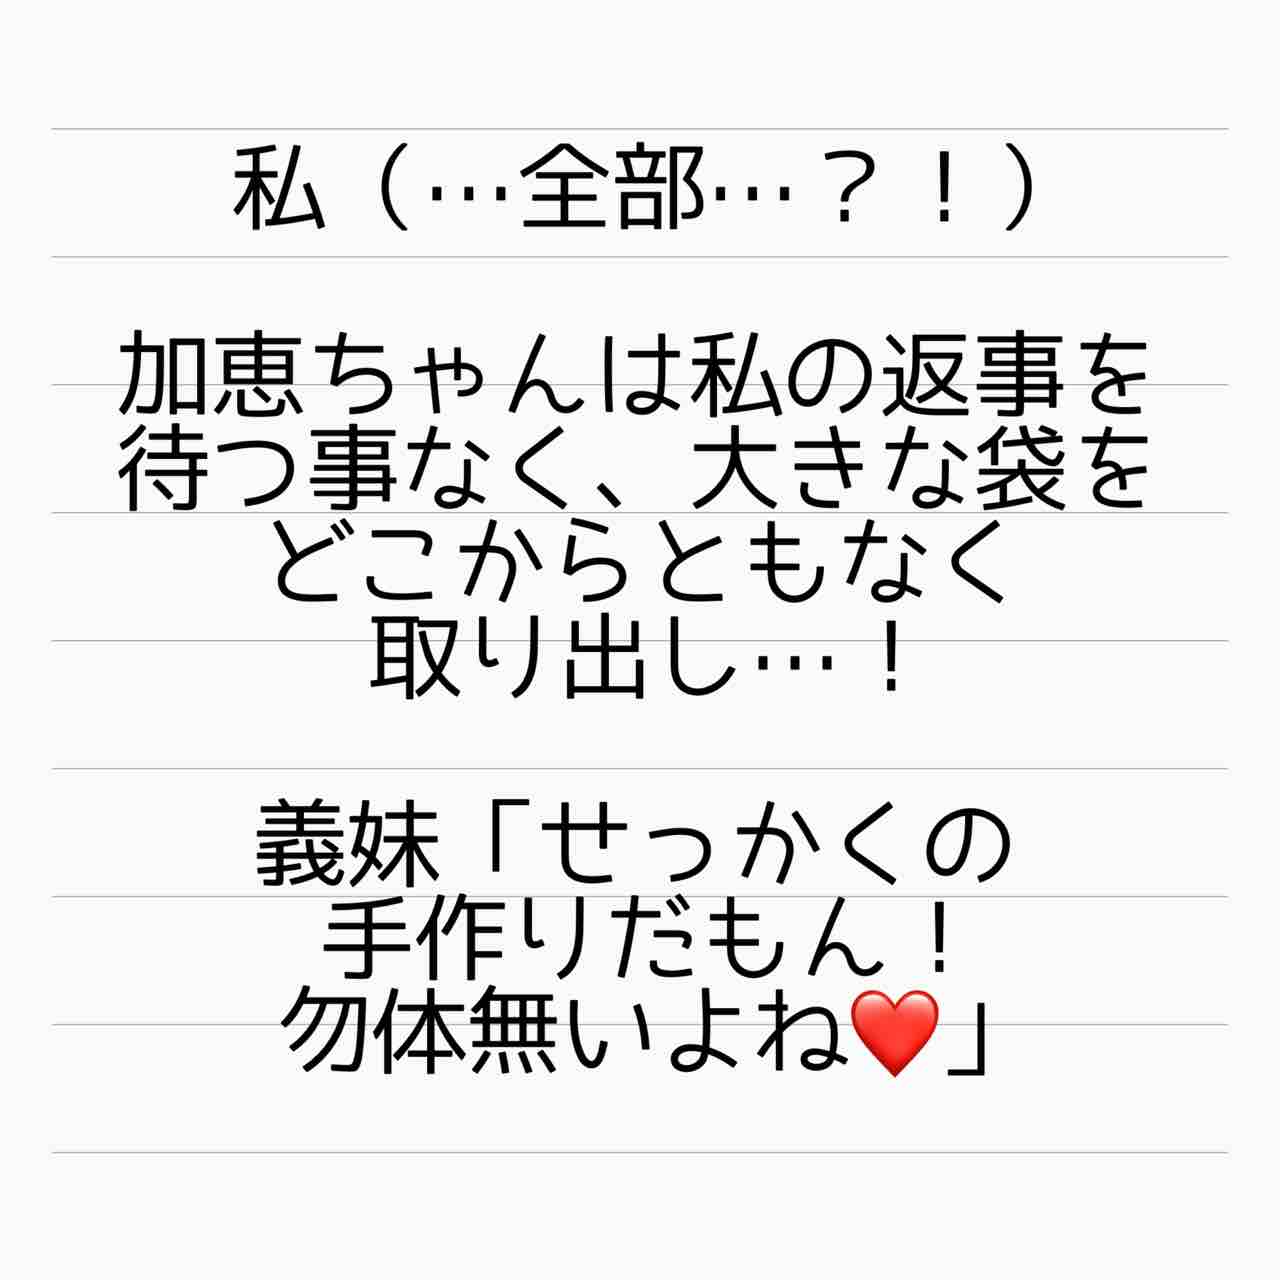 私（…全部…？！）
加恵ちゃんは私の返事を
待つ事なく、大きな袋を
どこからともなく
取り出し…！
義妹「せっかくの
手作りだもん！
勿体無いよね❤️」